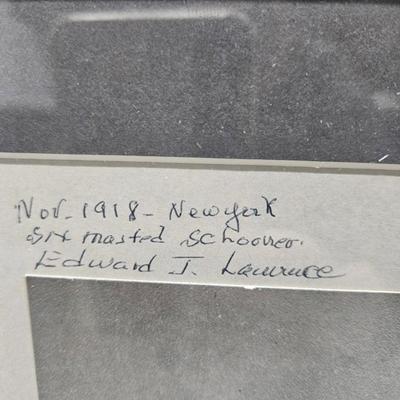 Nov. 1918 - New york
six masted schooner.
Edward J. Lawrence